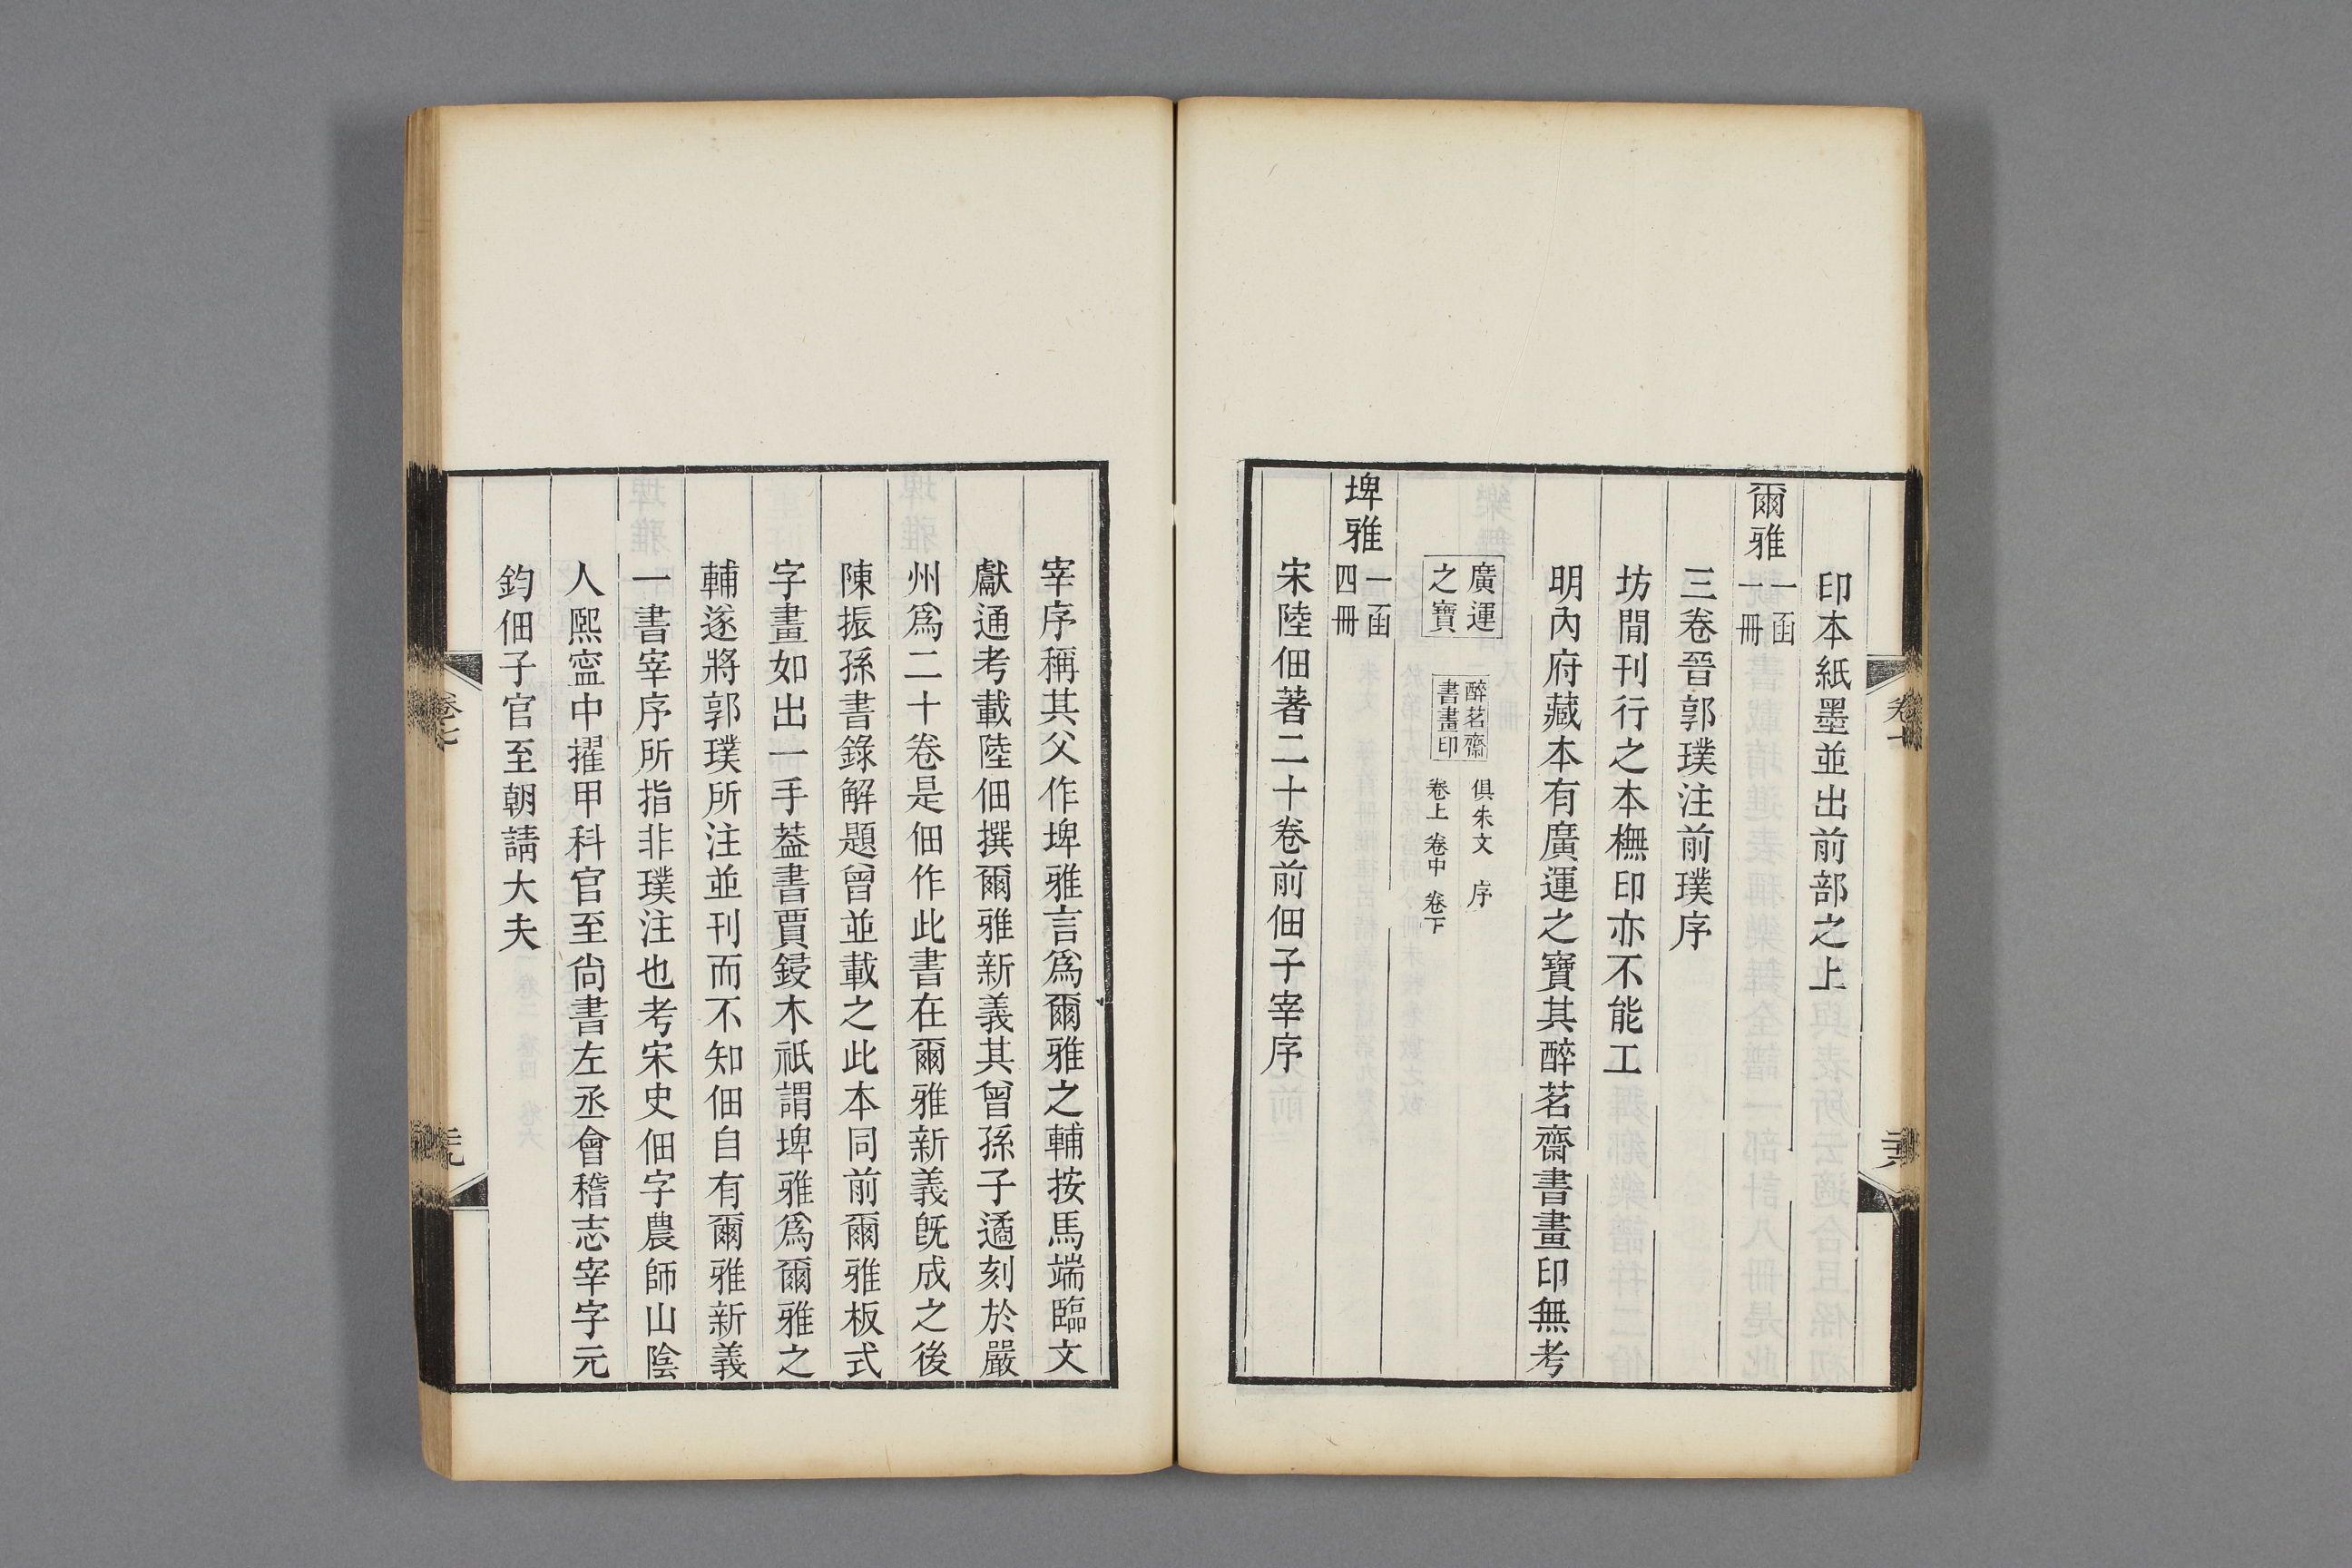 印本紙墨並出前部之上
爾雅 一函一冊
三卷晉郭璞注前璞序
坊閒刊行之本橅印亦不能工
明內府藏本有廣運之寶其醉茗齋書畫印無考
廣運之寶 醉茗齋書畫印 俱朱文 序 卷上 卷中 卷下
埤雅 一函四冊
宋陸佃著二十卷前佃子宰序
宰序稱其父作埤雅言爲爾雅之輔按馬端臨文
獻通考載陸佃撰爾雅新義其曾孫子遹刻於嚴
州爲二十卷是佃作此書在爾雅新義旣成之後
陳振孫書錄解題曾並載之此本同前爾雅板式
字畫如出一手葢書賈鋟木祇謂埤雅爲爾雅之
輔遂將郭璞所注並刊而不知佃自有爾雅新義
一書宰序所指非璞注也考宋史佃字農師山陰
人熙寍中擢甲科官至尙書左丞會稽志宰字元
鈞佃子官至朝請大夫
卷七